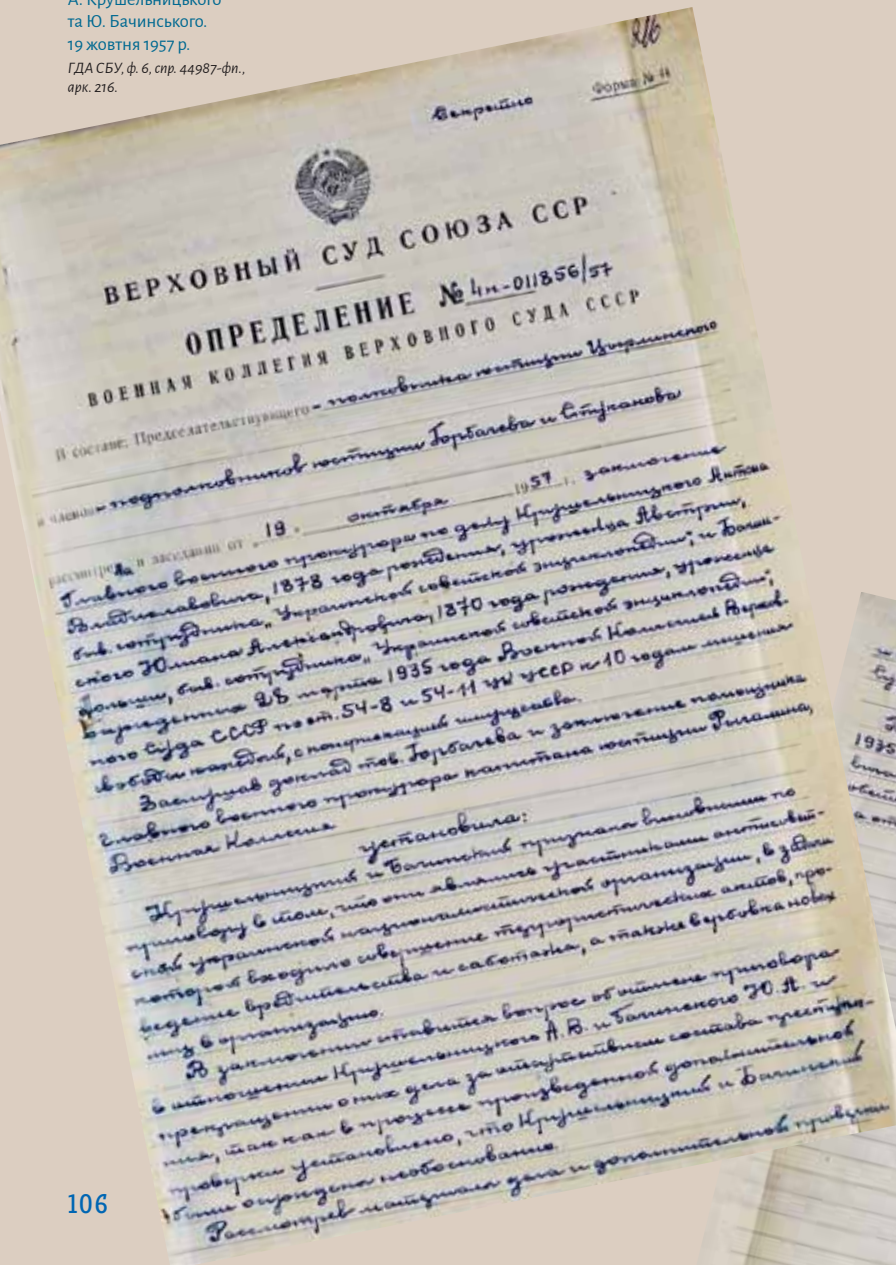 А. Крушельницького
та Ю. Бачинського.
19 жовтня 1957 р.
ГДА СБУ, ф. 6, спр. 44987-фп.,
арк. 216.
216
Секретно
Форма № 44
ВЕРХОВНЫЙ СУД СОЮЗА ССР
ОПРЕДЕЛЕНИЕ № 4н-011856/57
ВОЕННАЯ КОЛЛЕГИЯ ВЕРХОВНОГО СУДА СССР
В составе: Председательствующего – полковника юстиции Цырлинского
и членов – подполковников юстиции Горбачева и Стучанова
рассмотрела в заседании от „19" октября 1957 г. заключение
Главного военного прокурора по делу Крушельницкого Антона
Владиславовича, 1878 года рождения, уроженца Австрии,
быв. сотрудника „Украинской советской энциклопедии", и Бачин-
ского Юлиана Александровича, 1870 года рождения, уроженца
Польши, быв. сотрудника „Украинской советской энциклопедии",
осужденных 28 марта 1935 года Военной Коллегией Верхов-
ного Суда СССР по ст. 54-8 и 54-11 УК УССР к 10 годам лишения
свободы каждый, с конфискацией имущества.
Заслушав доклад тов. Горбачева и заключение помощника
Главного военного прокурора капитана юстиции
Военная Коллегия
установила:
Крушельницкий и Бачинский признаны виновными по
приговору в том, что они являлись участниками антисовет-
ской украинской националистической организации, в задачи
которой входило совершение террористических актов, про-
ведение вредительства и саботажа, а также вербовка новых
лиц в организацию.
В заключении ставится вопрос об отмене приговора
в отношении Крушельницкого А.В. и Бачинского Ю.А. и
прекращении о них дела за отсутствием состава преступле-
ния, так как в процессе произведенной дополнительной
проверки установлено, что Крушельницкий и Бачинский
были осуждены необоснованно.
Рассмотрев материалы дела и дополнительной проверки
106
1935